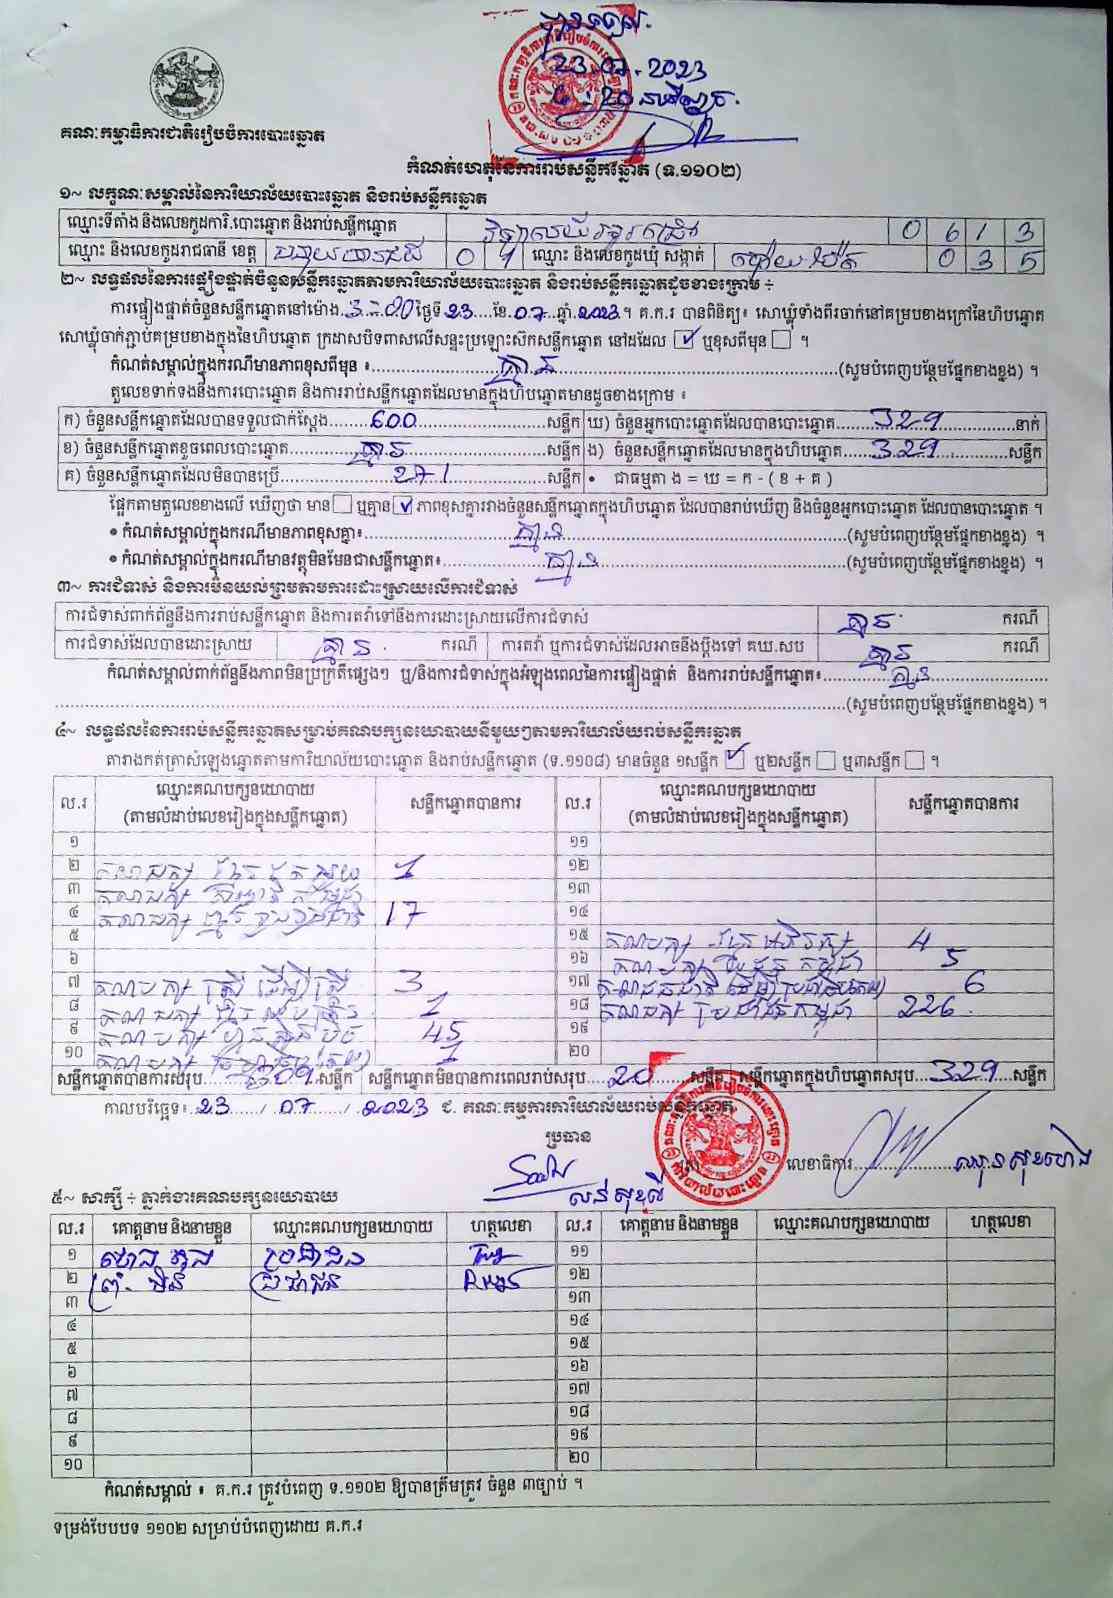 23.07.2023
គណៈកម្មាធិការជាតិរៀបចំការបោះឆ្នោត
កំណត់ហេតុនៃការរាប់សន្លឹកឆ្នោត (ទ.១១០២)
១~ លក្ខណៈសម្គាល់នៃការិយាល័យបោះឆ្នោត និងរាប់សន្លឹកឆ្នោត
ឈ្មោះទីតាំង និងលេខកូដការិ.បោះឆ្នោត និងរាប់សន្លឹកឆ្នោត 0 6 1 3
ឈ្មោះ និងលេខកូដរាជធានី ខេត្ត បន្ទាយមានជ័យ 0 ឈ្មោះ និងលេខកូដឃុំ សង្កាត់ ប៉ោយប៉ែត 0 3 5
២~ លទ្ធផលនៃការផ្ទៀងផ្ទាត់ចំនួនសន្លឹកឆ្នោតតាមការិយាល័យបោះឆ្នោត និងរាប់សន្លឹកឆ្នោតដូចខាងក្រោម ÷
ការផ្ទៀងផ្ទាត់ចំនួនសន្លឹកឆ្នោតនៅម៉ោង 3-00 ថ្ងៃទី 23 ខែ 07 ឆ្នាំ 2023 ។ គ.ក.រ បានពិនិត្យ៖ សោឃ្លុំទាំងពីរចាក់នៅគម្របខាងក្រៅនៃហិបឆ្នោត
សោឃ្លុំចាក់ភ្ជាប់គម្របខាងក្នុងនៃហិបឆ្នោត ក្រដាសបិទពាសលើសន្ទះប្រឡោះស៊កសន្លឹកឆ្នោត នៅដដែល ☑ ឬខុសពីមុន ☐ ។
កំណត់សម្គាល់ក្នុងករណីមានភាពខុសពីមុន ៖ គ្មាន (សូមបំពេញបន្ថែមផ្នែកខាងខ្នង) ។
តួលេខទាក់ទងនឹងការបោះឆ្នោត និងការរាប់សន្លឹកឆ្នោតដែលមានក្នុងហិបឆ្នោតមានដូចខាងក្រោម ៖
ក) ចំនួនសន្លឹកឆ្នោតដែលបានទទួលជាក់ស្តែង 600 សន្លឹក ឃ) ចំនួនអ្នកបោះឆ្នោតដែលបានបោះឆ្នោត 329 នាក់
ខ) ចំនួនសន្លឹកឆ្នោតខូចពេលបោះឆ្នោត គ្មាន សន្លឹក ង) ចំនួនសន្លឹកឆ្នោតដែលមានក្នុងហិបឆ្នោត 329 សន្លឹក
គ) ចំនួនសន្លឹកឆ្នោតដែលមិនបានប្រើ 271 សន្លឹក • ជាធម្មតា ង = ឃ = ក - ( ខ + គ )
ផ្អែកតាមតួលេខខាងលើ ឃើញថា មាន ☐ ឬគ្មាន ☑ ភាពខុសគ្នារវាងចំនួនសន្លឹកឆ្នោតក្នុងហិបឆ្នោត ដែលបានរាប់ឃើញ និងចំនួនអ្នកបោះឆ្នោត ដែលបានបោះឆ្នោត ។
• កំណត់សម្គាល់ក្នុងករណីមានភាពខុសគ្នា៖ គ្មាន (សូមបំពេញបន្ថែមផ្នែកខាងខ្នង) ។
• កំណត់សម្គាល់ក្នុងករណីមានវត្ថុមិនមែនជាសន្លឹកឆ្នោត៖ គ្មាន (សូមបំពេញបន្ថែមផ្នែកខាងខ្នង) ។
៣~ ការជំទាស់ និងការមិនយល់ព្រមតាមការដោះស្រាយលើការជំទាស់
ការជំទាស់ពាក់ព័ន្ធនឹងការរាប់សន្លឹកឆ្នោត និងការតវ៉ាទៅនឹងការដោះស្រាយលើការជំទាស់ គ្មាន ករណី
ការជំទាស់ដែលបានដោះស្រាយ គ្មាន ករណី ការតវ៉ា ឬការជំទាស់ដែលអាចនឹងប្តឹងទៅ គឃ.សប គ្មាន ករណី
កំណត់សម្គាល់ពាក់ព័ន្ធនឹងភាពមិនប្រក្រតីផ្សេងៗ ឬ/និងការជំទាស់ក្នុងអំឡុងពេលនៃការផ្ទៀងផ្ទាត់ និងការរាប់សន្លឹកឆ្នោត៖ គ្មាន
(សូមបំពេញបន្ថែមផ្នែកខាងខ្នង) ។
៤~ លទ្ធផលនៃការរាប់សន្លឹកឆ្នោតសម្រាប់គណបក្សនយោបាយនីមួយៗតាមការិយាល័យរាប់សន្លឹកឆ្នោត
តារាងកត់ត្រាសំឡេងឆ្នោតតាមការិយាល័យបោះឆ្នោត និងរាប់សន្លឹកឆ្នោត (ទ.១១០៨) មានចំនួន ១សន្លឹក ☑ ឬ២សន្លឹក ☐ ឬ៣សន្លឹក ☐ ។
ល.រ ឈ្មោះគណបក្សនយោបាយ (តាមលំដាប់លេខរៀងក្នុងសន្លឹកឆ្នោត) សន្លឹកឆ្នោតបានការ ល.រ ឈ្មោះគណបក្សនយោបាយ (តាមលំដាប់លេខរៀងក្នុងសន្លឹកឆ្នោត) សន្លឹកឆ្នោតបានការ
១ ១១
២ គណបក្ស ខ្មែរ 1 ១២
៣ គណបក្ស ១៣
៤ គណបក្ស 17 ១៤
៥ ១៥ គណបក្ស 4
៦ ១៦ គណបក្ស កម្ពុជា 5
៧ គណបក្ស ស្ត្រីដើម្បីស្ត្រី 3 ១៧ 6
៨ គណបក្ស 1 ១៨ គណបក្ស ប្រជាជនកម្ពុជា 226
៩ គណបក្ស ហ្វ៊ុនស៊ិនប៉ិច 45 ១៩
១០ គណបក្ស 1 ២០
សន្លឹកឆ្នោតបានការសរុប 309 សន្លឹក សន្លឹកឆ្នោតមិនបានការពេលរាប់សរុប 20 សន្លឹក សន្លឹកឆ្នោតក្នុងហិបឆ្នោតសរុប 329 សន្លឹក
កាលបរិច្ឆេទ៖ 23 / 07 / 2023 ជ. គណៈកម្មការការិយាល័យរាប់សន្លឹកឆ្នោត
ប្រធាន
លេខាធិការ
៥~ សាក្សី ÷ ភ្នាក់ងារគណបក្សនយោបាយ
ល.រ គោត្តនាម និងនាមខ្លួន ឈ្មោះគណបក្សនយោបាយ ហត្ថលេខា ល.រ គោត្តនាម និងនាមខ្លួន ឈ្មោះគណបក្សនយោបាយ ហត្ថលេខា
១ ប្រជាជន ១១
២ ប្រជាជន ១២
៣ ១៣
៤ ១៤
៥ ១៥
៦ ១៦
៧ ១៧
៨ ១៨
៩ ១៩
១០ ២០
កំណត់សម្គាល់ ៖ គ.ក.រ ត្រូវបំពេញ ទ.១១០២ ឱ្យបានត្រឹមត្រូវ ចំនួន ៣ច្បាប់ ។
ទម្រង់បែបបទ ១១០២ សម្រាប់បំពេញដោយ គ.ក.រ